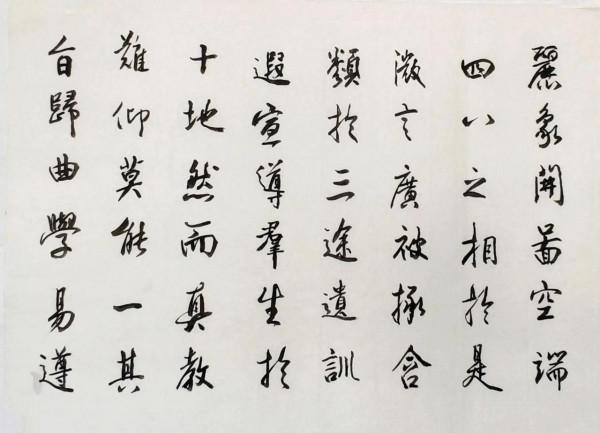 麗象開圖空端
四八之相於是
微言廣被拯含
類於三途遺訓
遐宣導群生於
十地然而真教
難仰莫能一其
旨歸曲學易遵